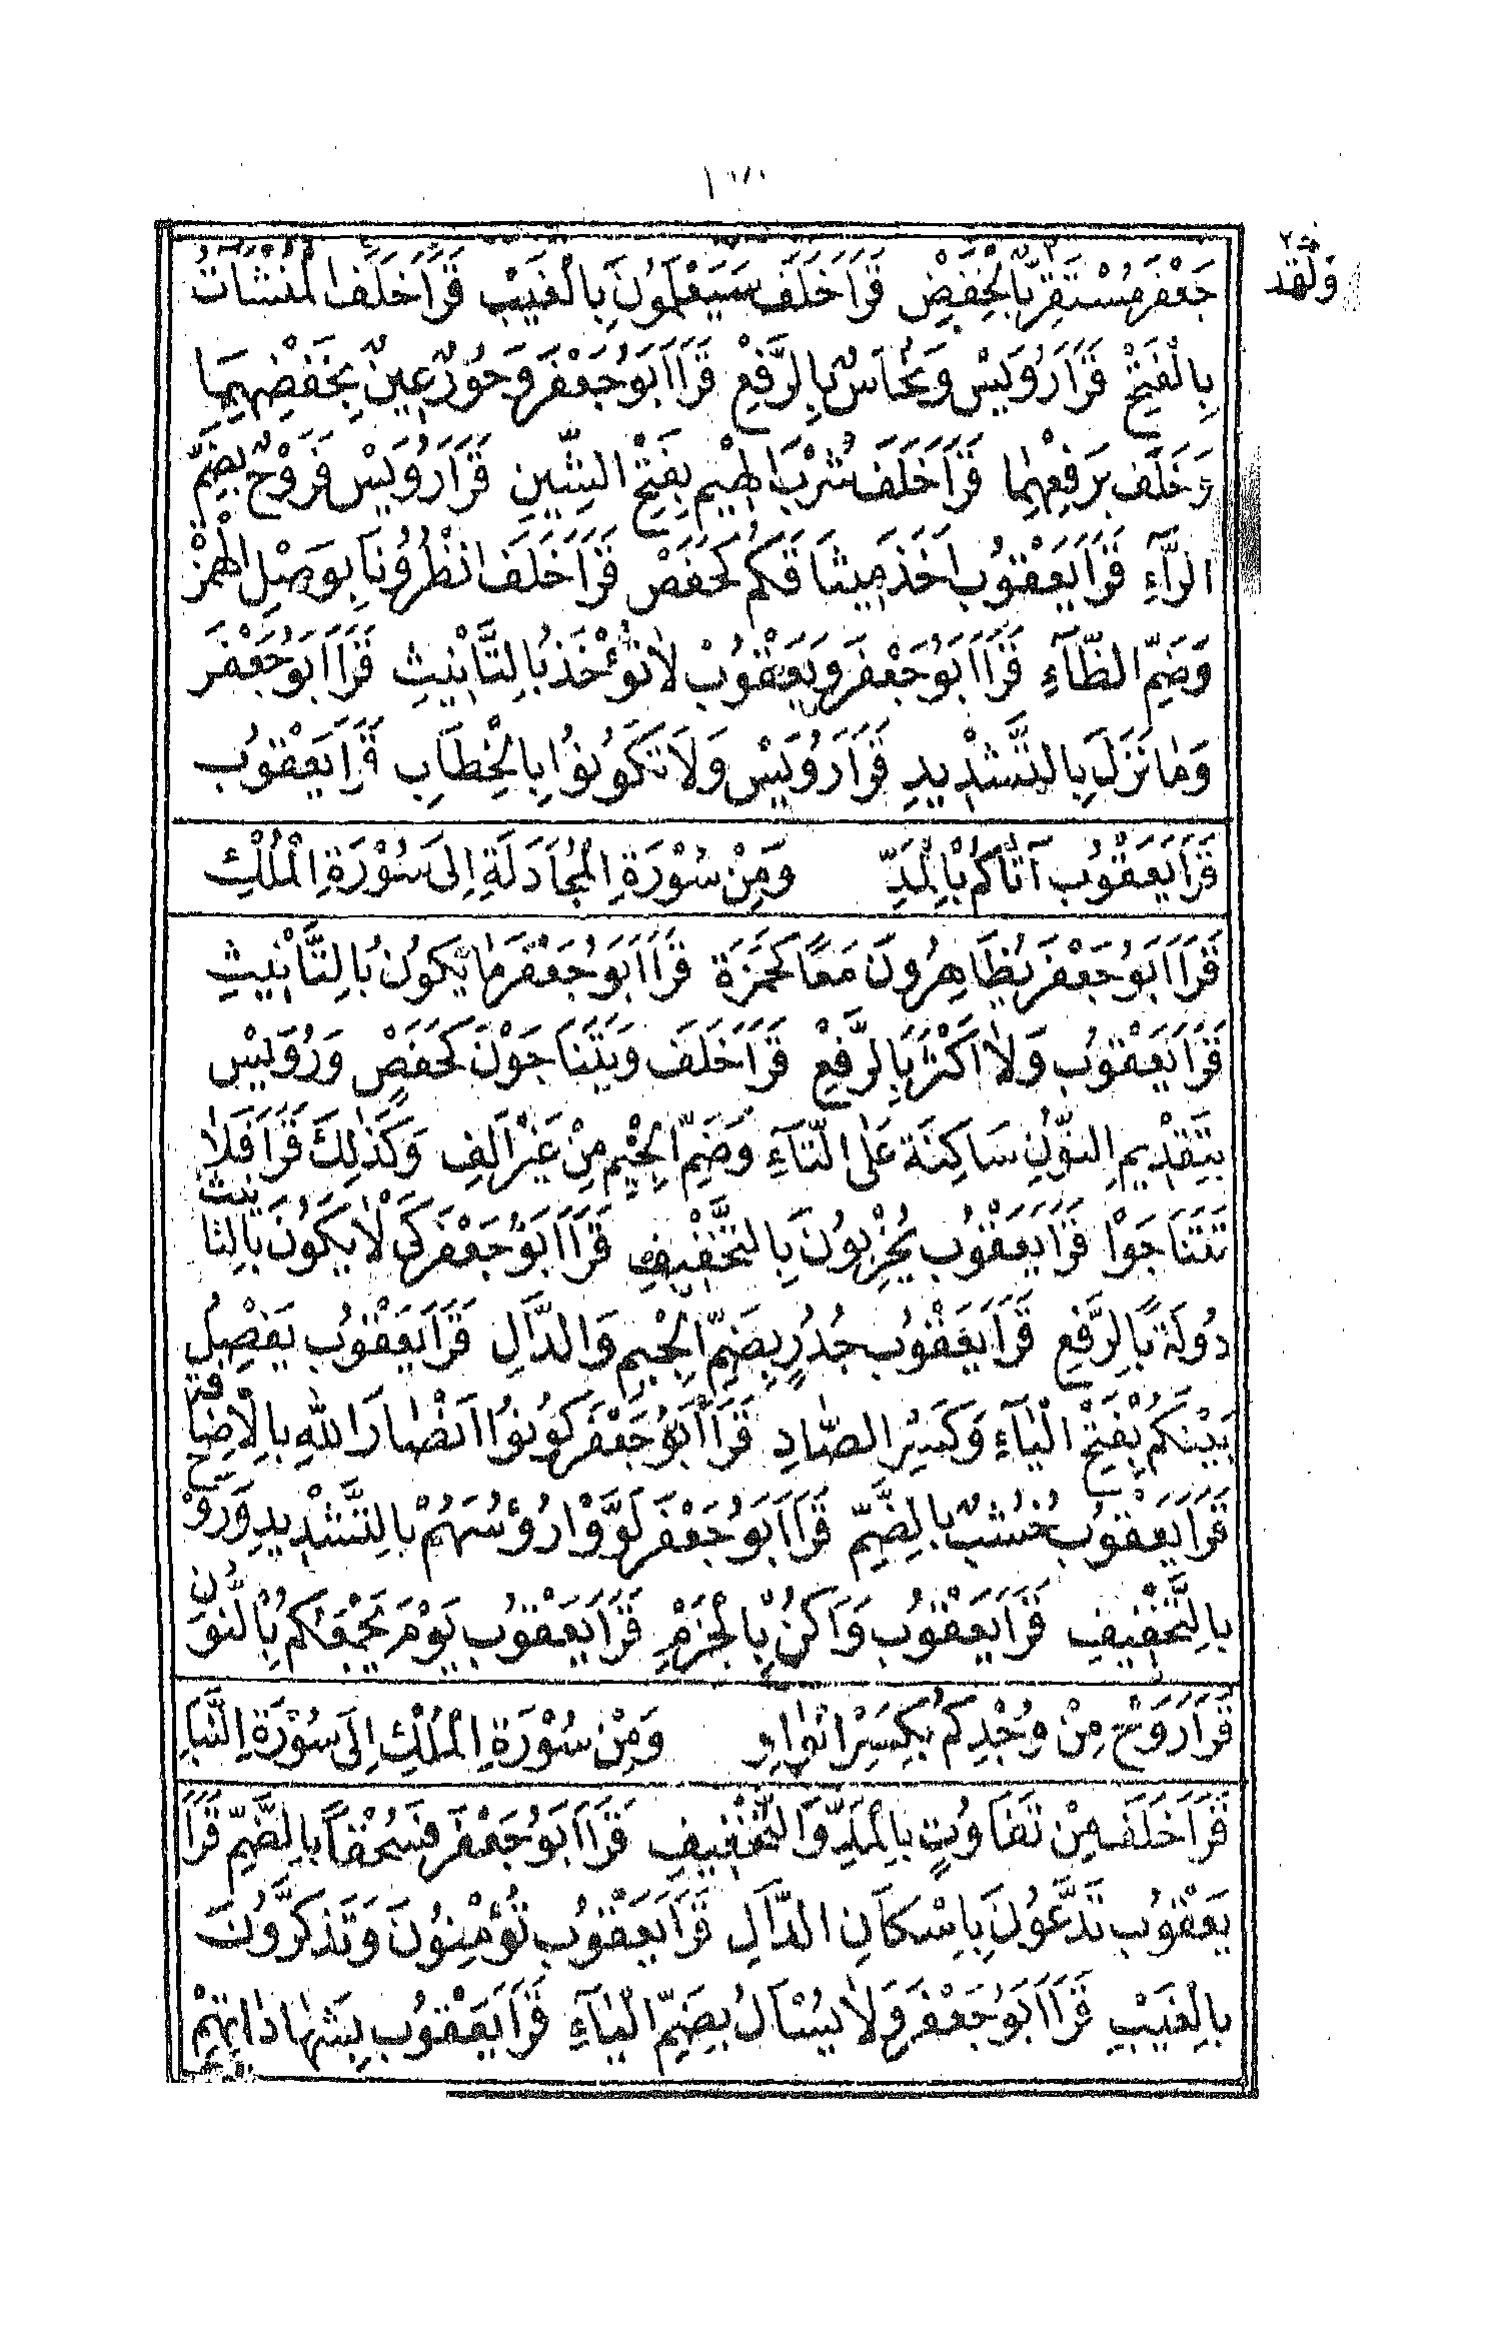 وَلَقَدْ
جَعْفَرَ مُسْتَقِرٍّ بِالْخَفْضِ قَرَأَ خَلَفَ سَيَعْلَمُونَ بِالْغَيْبِ قَرَأَ خَلَفَ الْمُنْشَآتُ
بِالْفَتْحِ قَرَأَ رُوَيْسْ وَنُحَاسٌ بِالرَّفْعِ قَرَأَ أَبُو جَعْفَرَ وَحُورٌ عِينٌ بِخَفْضِهِمَا
وَخَلَفَ بِرَفْعِهِمَا قَرَأَ خَلَفَ شُرْبَ الْهِيْمِ بِفَتْحِ الشِّينِ قَرَأَ رُوَيْسْ فَرَوْحٌ بِضَمِّ
الرَّآءِ قَرَأَ يَعْقُوبُ أَخَذَ مِيثَاقَكُمْ كَحَفْصْ قَرَأَ خَلَفَ انْظُرُونَا بِوَصْلِ الْهَمْزَ
وَضَمِّ الظَّآءِ قَرَأَ أَبُو جَعْفَرَ وَيَعْقُوبْ لَا تُؤْخَذُ بِالتَّأْنِيثِ قَرَأَ أَبُو جَعْفَرَ
وَمَا نَزَّلَ بِالتَّشْدِيدِ قَرَأَ رُوَيْسْ وَلَا تَكُونُوا بِالْخِطَابِ قَرَأَ يَعْقُوبُ
قَرَأَ يَعْقُوبُ آتَاكُمْ بِالْمَدِّ وَمِنْ سُوْرَةِ الْمُجَادَلَةِ إِلَى سُوْرَةِ الْمُلْكِ
قَرَأَ أَبُو جَعْفَرَ يُظَاهِرُونَ مَعًا كَحَمْزَةَ قَرَأَ أَبُو جَعْفَرَ مَا يَكُونُ بِالتَّأْنِيثِ
قَرَأَ يَعْقُوبُ وَلَا أَكْثَرَ بِالرَّفْعِ قَرَأَ خَلَفَ وَيَتَنَاجَوْنَ كَحَفْصٍ وَرُوَيْسْ
بِتَقْدِيمِ النُّونِ سَاكِنَةً عَلَى التَّآءِ وَضَمِّ الْجِيْمِ مِنْ غَيْرِ أَلِفٍ وَكَذَلِكَ قَرَأَ فَلَا
تَتَنَاجَوْا قَرَأَ يَعْقُوبُ يُخْرِبُونَ بِالتَّخْفِيفِ قَرَأَ أَبُو جَعْفَرَ كَيْ لَا يَكُونَ بِالتَّأنيث
دُولَةً بِالرَّفْعِ قَرَأَ يَعْقُوبُ جُدُرٍ بِضَمِّ الْجِيمِ وَالدَّالِ قَرَأَ يَعْقُوبُ يَفْصِلُ
بَيْنَكُمْ بِفَتْحِ الْيَآءِ وَكَسْرِ الصَّادِ قَرَأَ أَبُو جَعْفَرَ كُونُوا أَنْصَارَ اللَّهِ بِالْإِضَافة
قَرَأَ يَعْقُوبُ خُشُبٌ بِالضَّمِّ قَرَأَ أَبُو جَعْفَرَ لَوَّوْا رُؤُسَهُمْ بِالتَّشْدِيدِ وَرَوْح
بِالتَّخْفِيفِ قَرَأَ يَعْقُوبُ وَأَكُنْ بِالْجَزْمِ قَرَأَ يَعْقُوبُ يَوْمَ يَجْمَعُكُمْ بِالنُّونِ
قَرَأَ رَوْحٌ مِنْ وُجْدِكُمْ بِكَسْرِ الْوَاوِ وَمِنْ سُوْرَةِ الْمُلْكِ إِلَى سُوْرَةِ النَّبَأِ
قَرَأَ خَلَفَ مِنْ تَفَاوُتٍ بِالْمَدِّ وَالتَّخْفِيفِ قَرَأَ أَبُو جَعْفَرَ فَسُحْقًا بِالضَّمِّ قَرَأَ
يَعْقُوبُ تَدَّعُونَ بِاِسْكَانِ الدَّالِ قَرَأَ يَعْقُوبُ تُؤْمِنُونَ وَتَذَكَّرُونَ
بِالْغَيْبِ قَرَأَ أَبُو جَعْفَرَ وَلَا يُسْأَلُ بِضَمِّ الْيَآءِ قَرَأَ يَعْقُوبُ بِشَهَادَاتِهِمْ